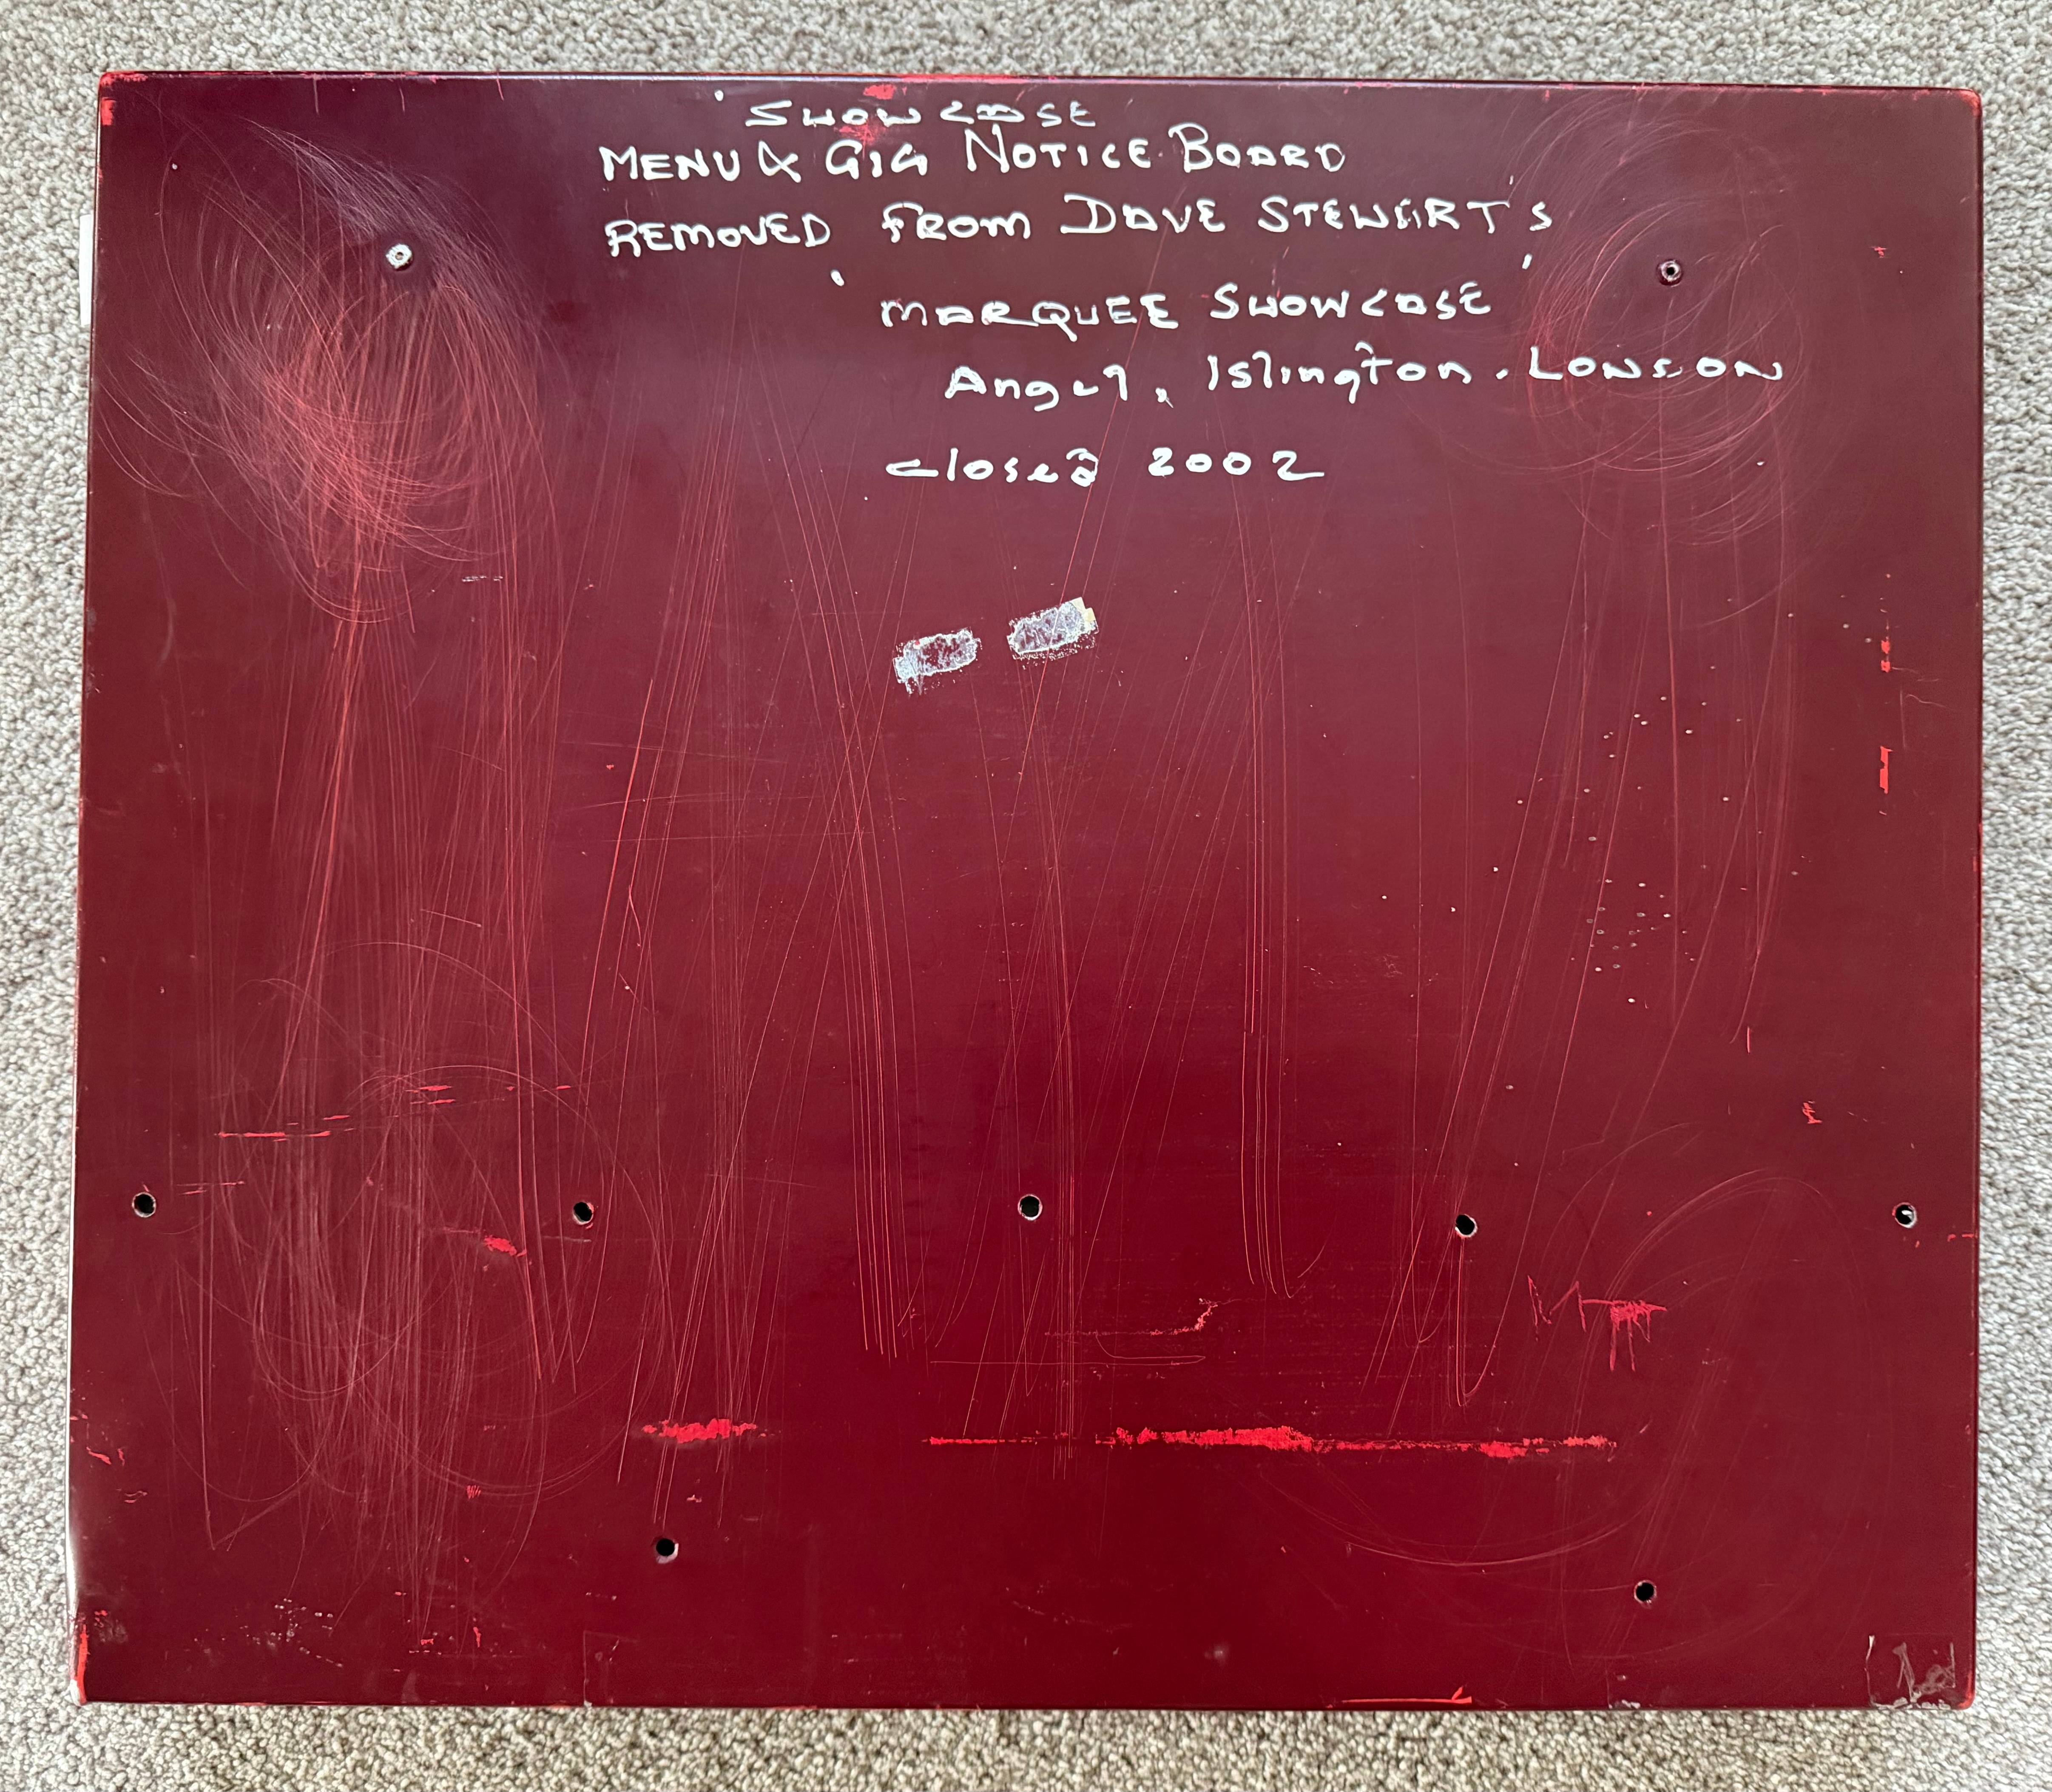 'SHOWCASE
MENU & GIG NOTICE BOARD
REMOVED FROM DAVE STEWART'S
'MARQUEE SHOWCASE'
Angel, Islington. LONDON
closed 2002